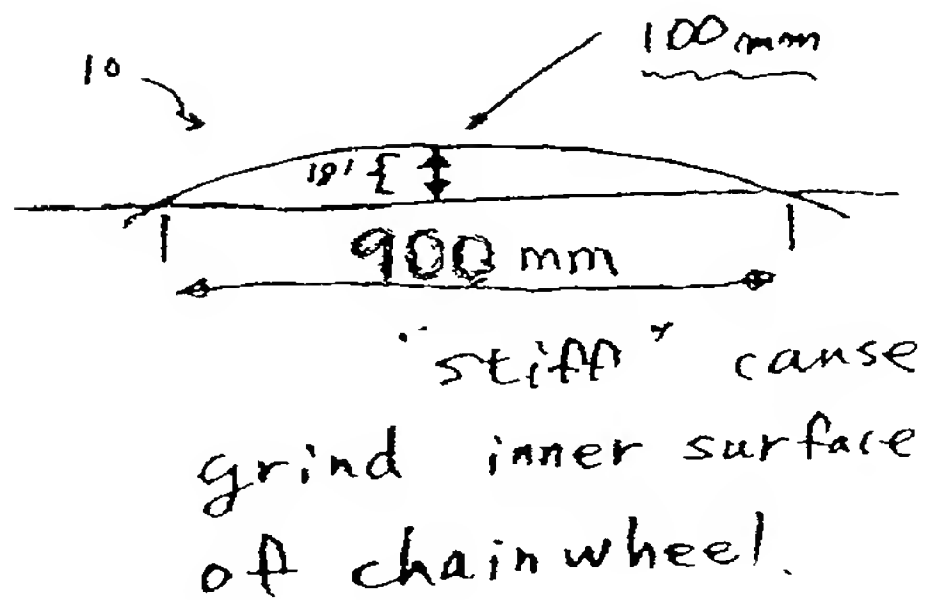 100 mm
10
18' {
900 mm
"stiff" canse
grind inner surface
of chainwheel.